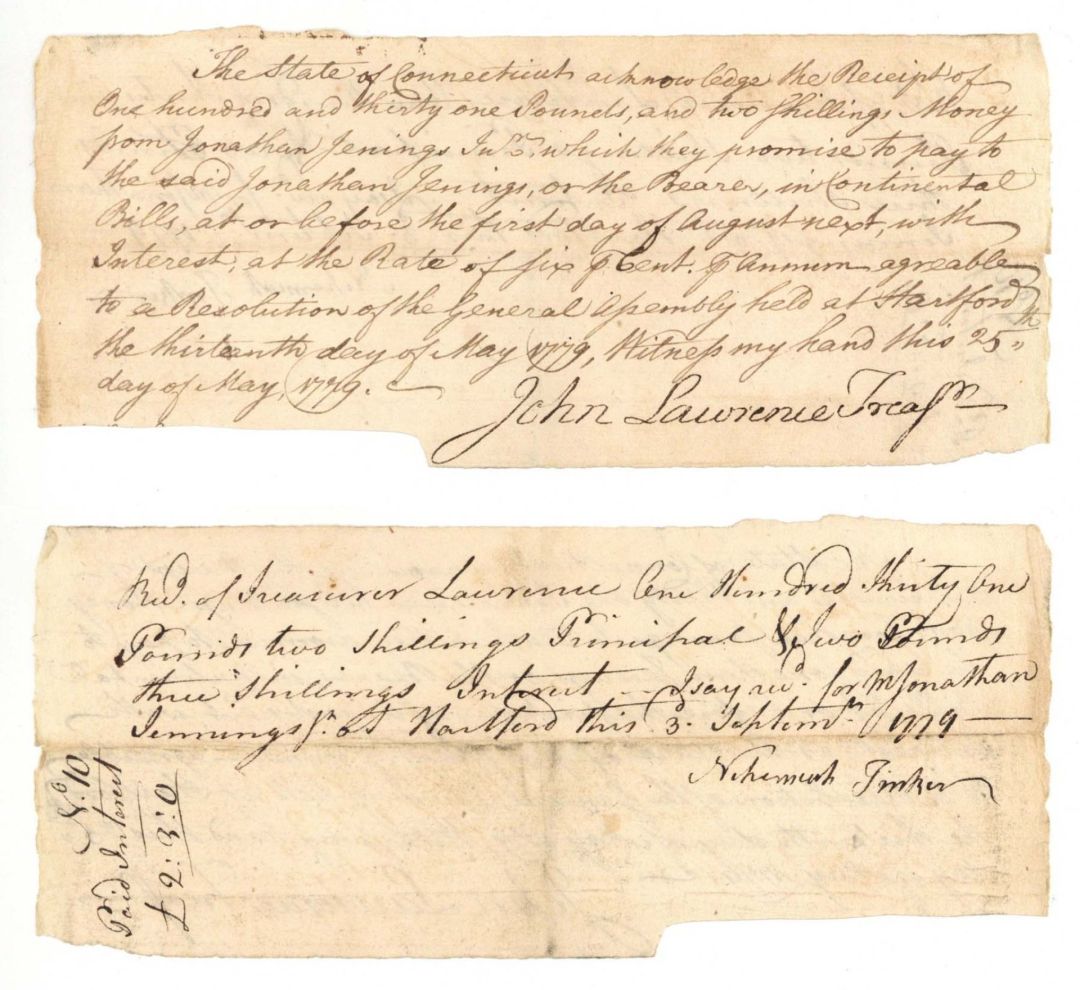 The State of Connecticut acknowledge the Receipt of
One hundred and thirty one Pounds, and two Shillings Money
from Jonathan Jenings Junr. which they promise to pay to
the said Jonathan Jenings, or the Bearer, in Continental
Bills, at or before the first day of August next, with
Interest, at the Rate of six ⅌ Cent. ⅌ Annum agreable
to a Resolution of the General Assembly held at Hartford
the thirteenth day of May 1779, Witness my hand this 25th
day of May, 1779.
John Lawrence Treasr
Recd. of Treasurer Lawrence One Hundred Thirty One
Pounds two shillings Principal & Two Pounds
three shillings Interest I say recd. for Mr Jonathan
Jennings Jr. at Hartford this 3d. Septemr 1779
Nehemiah Tinker
No. 10
Paid Interest
£2:3:0